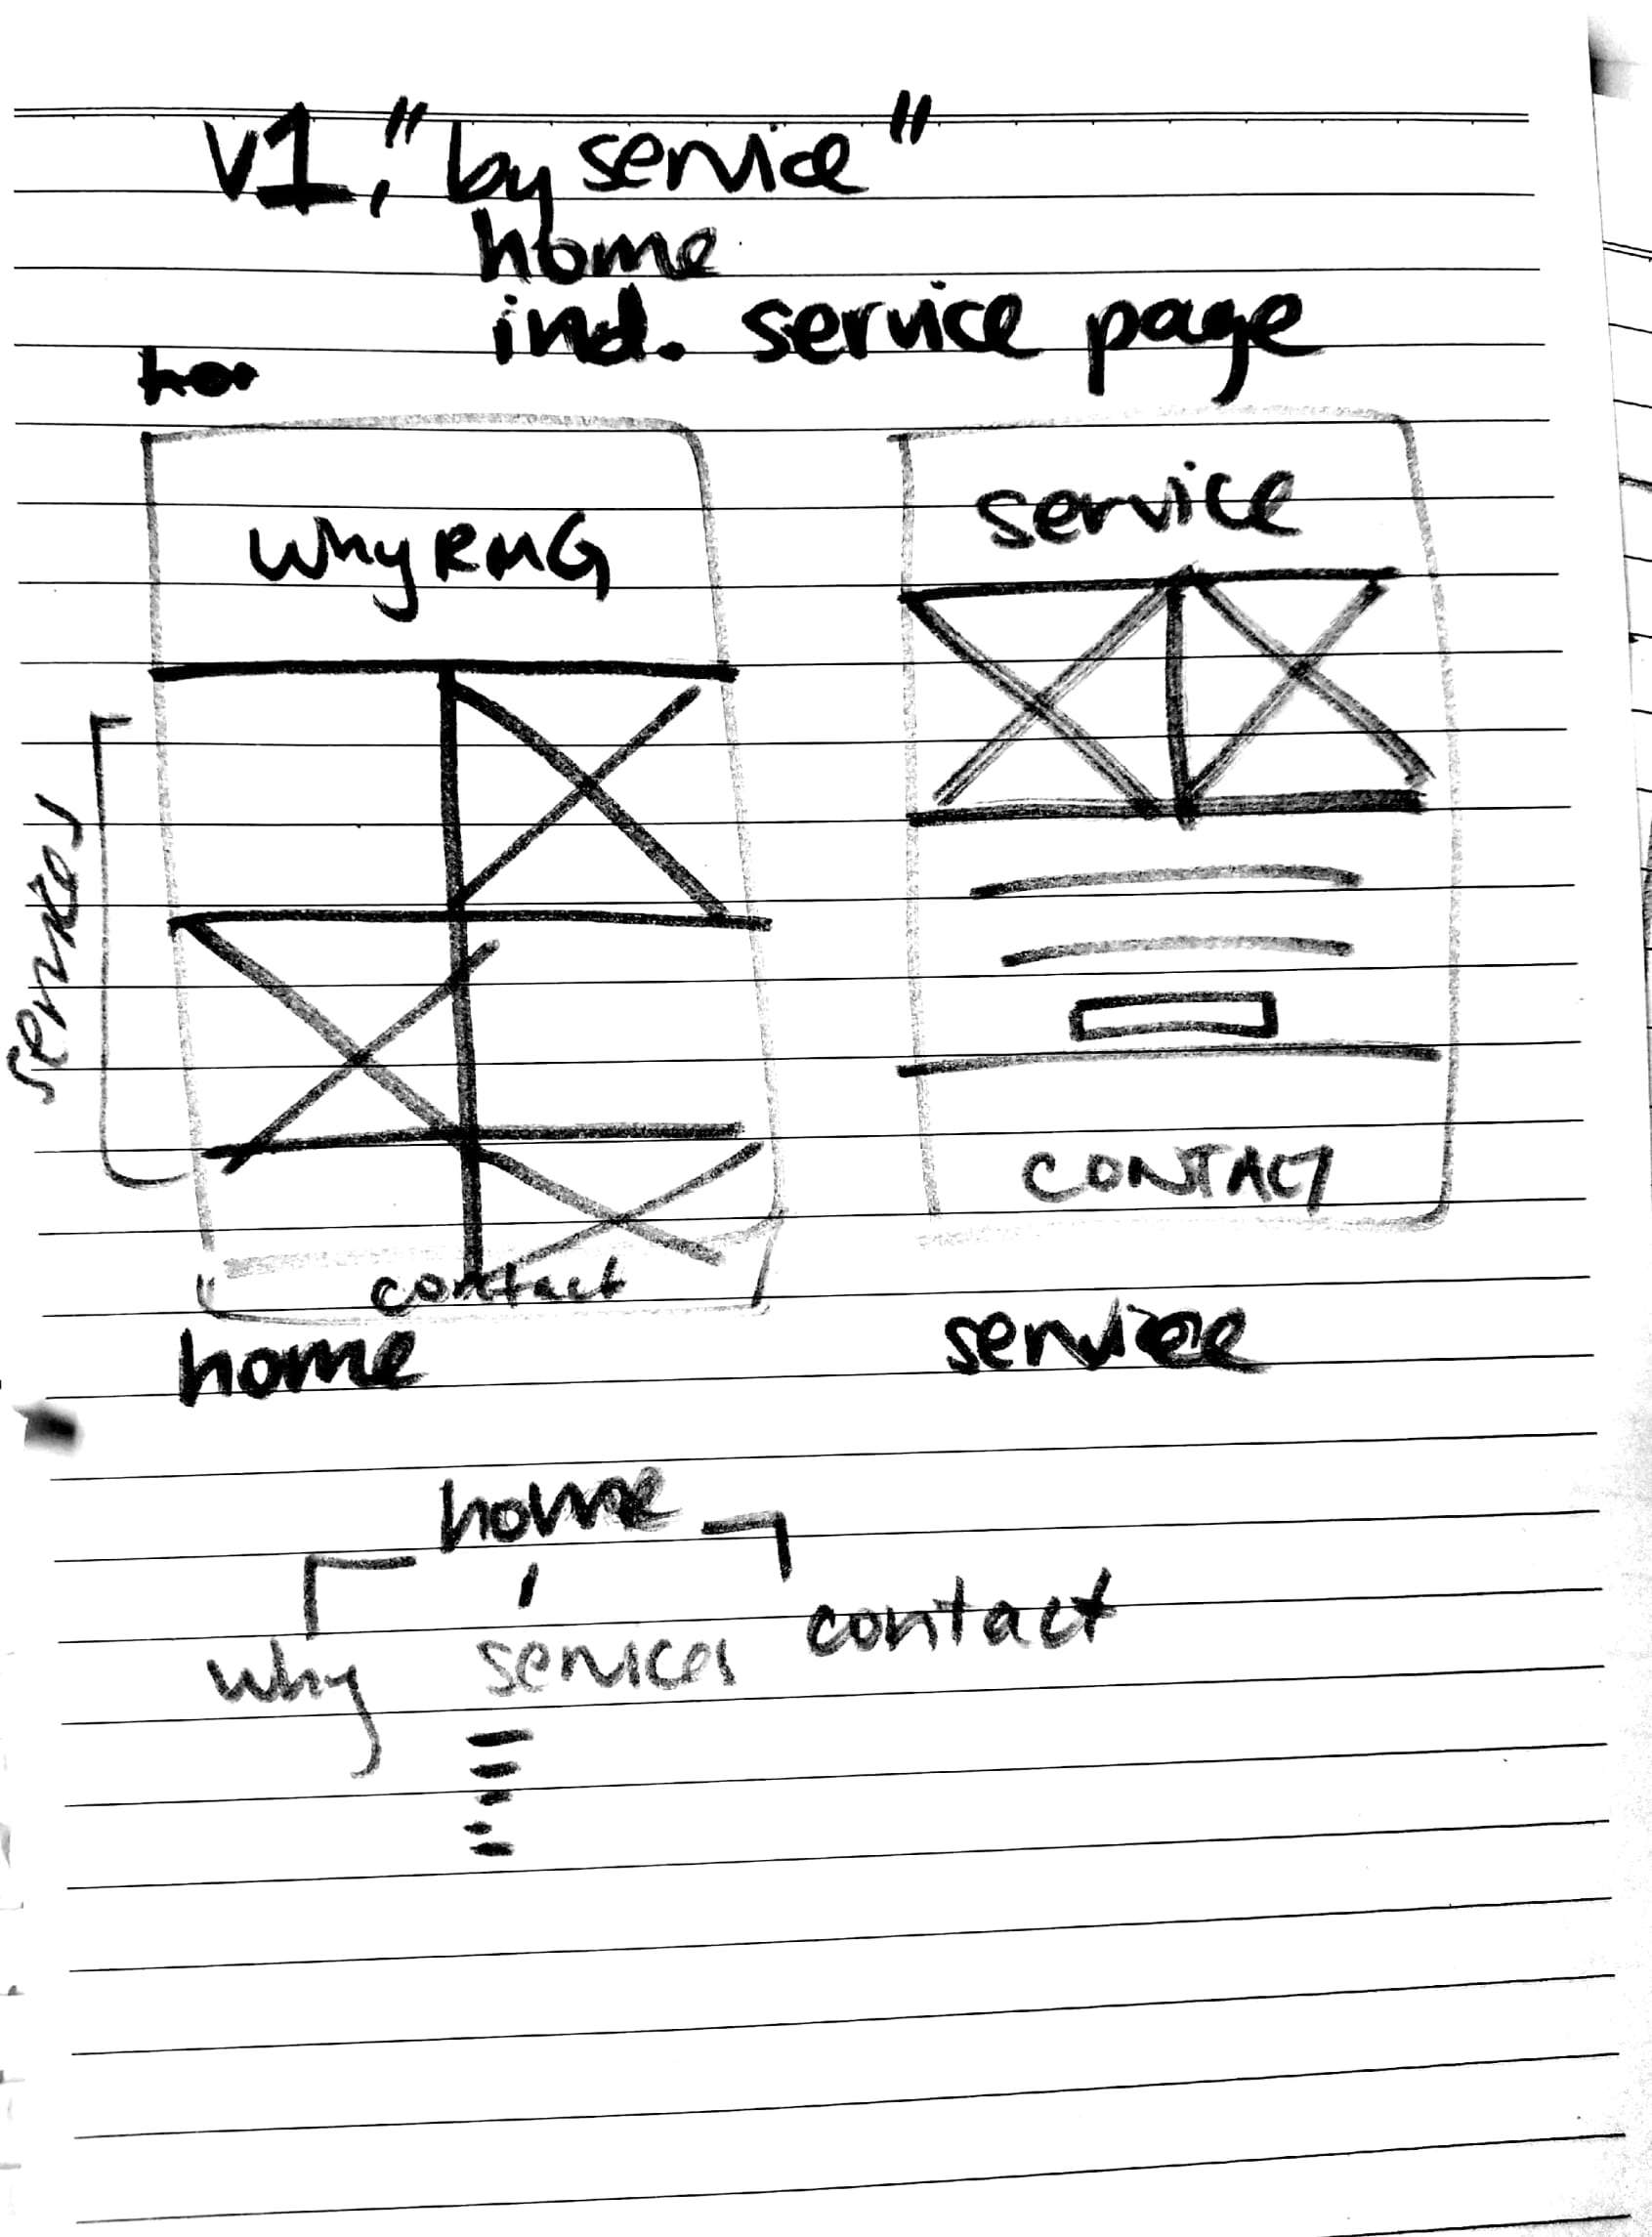 v1, "by service"
home
ind. service page
Why RMG
services
contact
home
service
CONTACT
service
home
why services contact